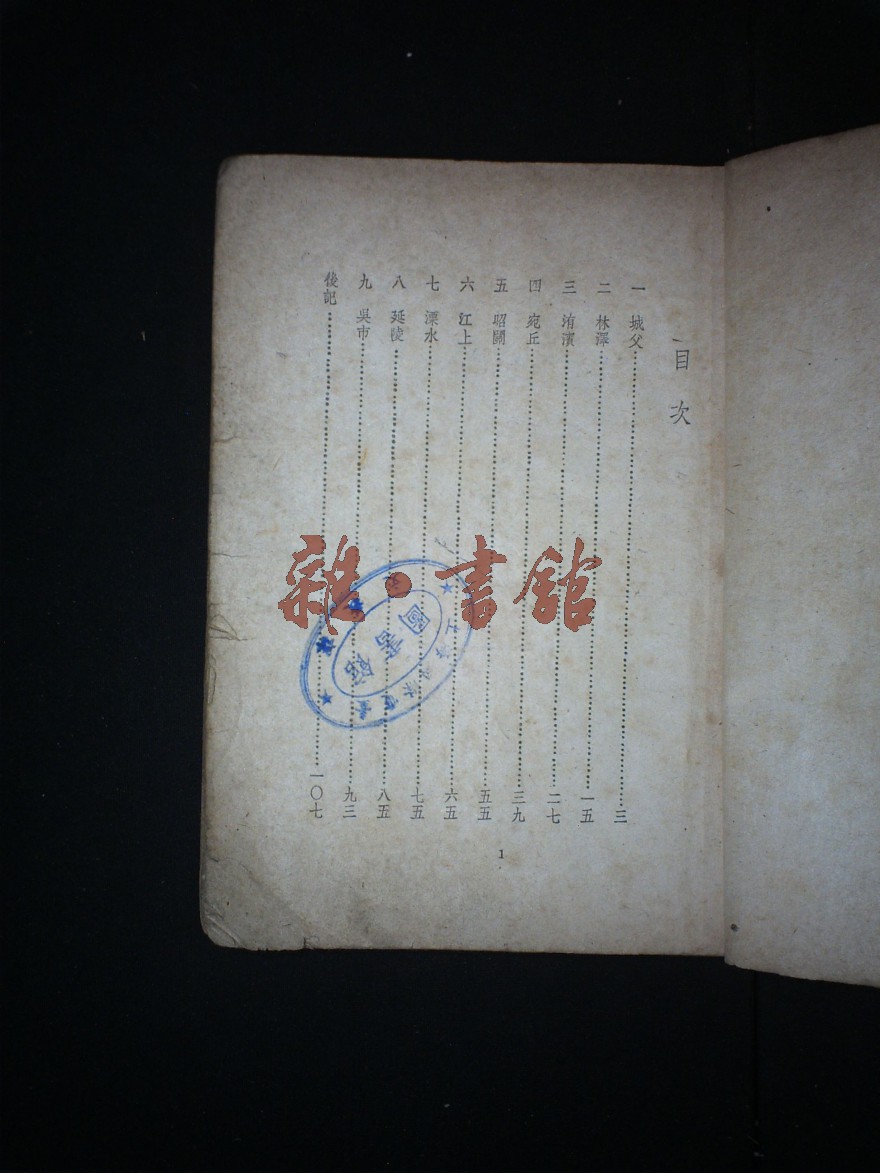 目次
一 城父 三
二 林澤 一五
三 洧濱 二七
四 宛丘 三九
五 昭關 五五
六 江上 六五
七 溧水 七五
八 延陵 八五
九 吳市 九三
後記 一〇七
1
圖書館
雜·書館